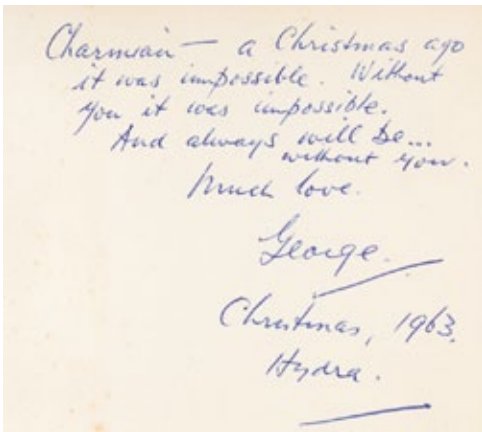 Charmian — a Christmas ago
it was impossible. Without
you it was impossible.
And always will be...
without you.
Much love.
George.
Christmas, 1963.
Hydra.